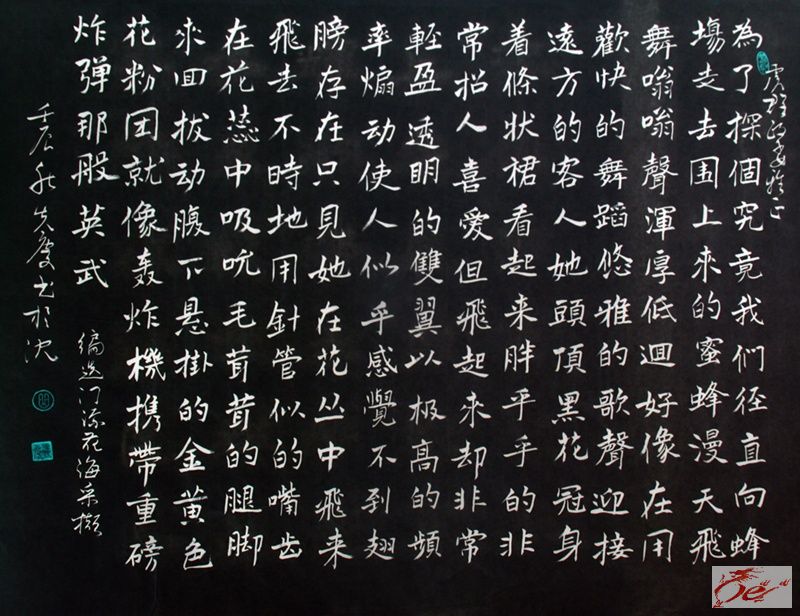 為了探個究竟我們径直向蜂
塲走去围上來的蜜蜂漫天飛
舞嗡嗡聲渾厚低迴好像在用
歡快的舞蹈悠雅的歌聲迎接
遠方的客人她頭頂黑花冠身
着條状裙看起来胖乎乎的非
常招人喜愛但飛起來却非常
輕盈透明的雙翼以极高的頻
率煽动使人似乎感覺不到翅
膀存在只見她在花丛中飛来
飛去不時地用針管似的嘴齿
在花蕊中吸吮毛茸茸的腿脚
來回拔动腹下悬掛的金黄色
花粉团就像轰炸機携帶重磅
炸弹那般英武
花海采撷
壬辰秋 慶书於沈